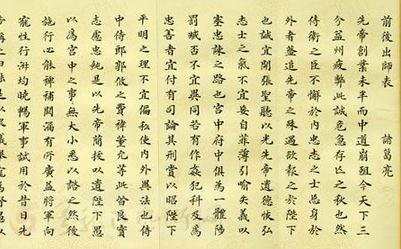 前後出師表　諸葛亮
先帝創業未半而中道崩殂今天下三
分益州疲弊此誠危急存亡之秋也然
侍衛之臣不懈於內忠志之士忘身於
外者蓋追先帝之殊遇欲報之於陛下
也誠宜開張聖聽以光先帝遺德恢弘
志士之氣不宜妄自菲薄引喻失義以
塞忠諫之路也宮中府中俱為一體陟
罰臧否不宜異同若有作姦犯科及為
忠善者宜付有司論其刑賞以昭陛下
平明之理不宜偏私使內外異法也侍
中侍郎郭攸之費褘董允等此皆良實
志慮忠純是以先帝簡拔以遺陛下愚
以為宮中之事無大小悉以諮之然後
施行必能裨補闕漏有所廣益將軍向
寵性行淑均曉暢軍事試用於昔日先